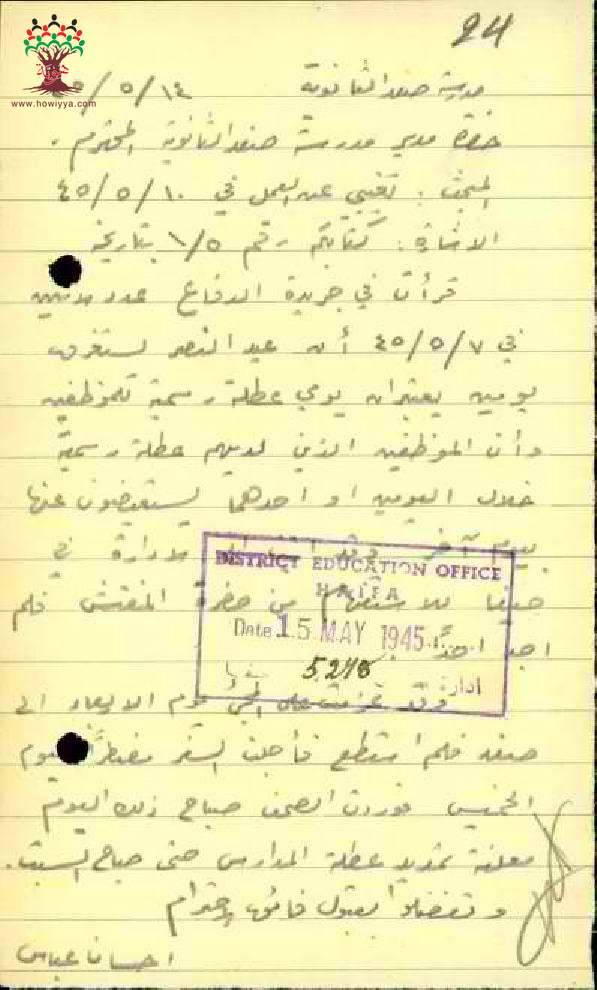 24
www.howiyya.com
مدرسة صفد الثانوية ١٤/٥/٤٥
حضرة مدير مدرسة صفد الثانوية المحترم .
المبحث : تغيبي عن العمل في ١٠/٥/٤٥
الاشارة : كتابكم رقم ١/٥ بتاريخ
قرأت في جريدة الدفاع عدد
في ٧/٥/٤٥ أن عيد النصر يستغرق
يومين يعتبران يومي عطلة رسمية للموظفين
وأن الموظفين الذين لديهم عطلة رسمية
خلال اليومين او احدهما يستعيضون عنها
بيوم آخر وقد الادارة في
حيفا للاستفهام من حضرة المفتش فلم
اجد احداً
DISTRICT EDUCATION OFFICE
HAIFA
Date 15 MAY 1945
5245
ادارة حيفا
وقد عزمت على المجيء يوم الاربعاء الى
صفد فلم استطع فأجلت السفر مضطراً ليوم
الخميس فوردت الصحف صباح ذلك اليوم
معلنة تمديد عطلة المدارس حتى صباح السبت .
وتفضلوا بقبول فائق الاحترام
احسان عباس